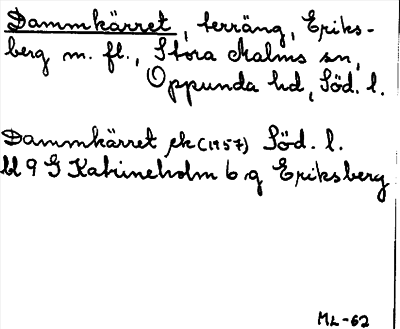 Dammkärret, terräng, Eriks-
berg m. fl., Stora Malms sn,
Oppunda hd, Söd. l.
Dammkärret ek (1957) Söd. l.
bl 9 G Katrineholm 6 g Eriksberg
ML-62